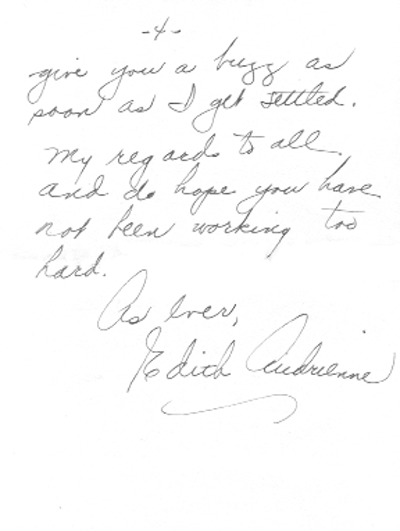 -4-
give you a buzz as
soon as I get settled.
My regards to all
and do hope you have
not been working too
hard.
As ever,
Edith Audrienne